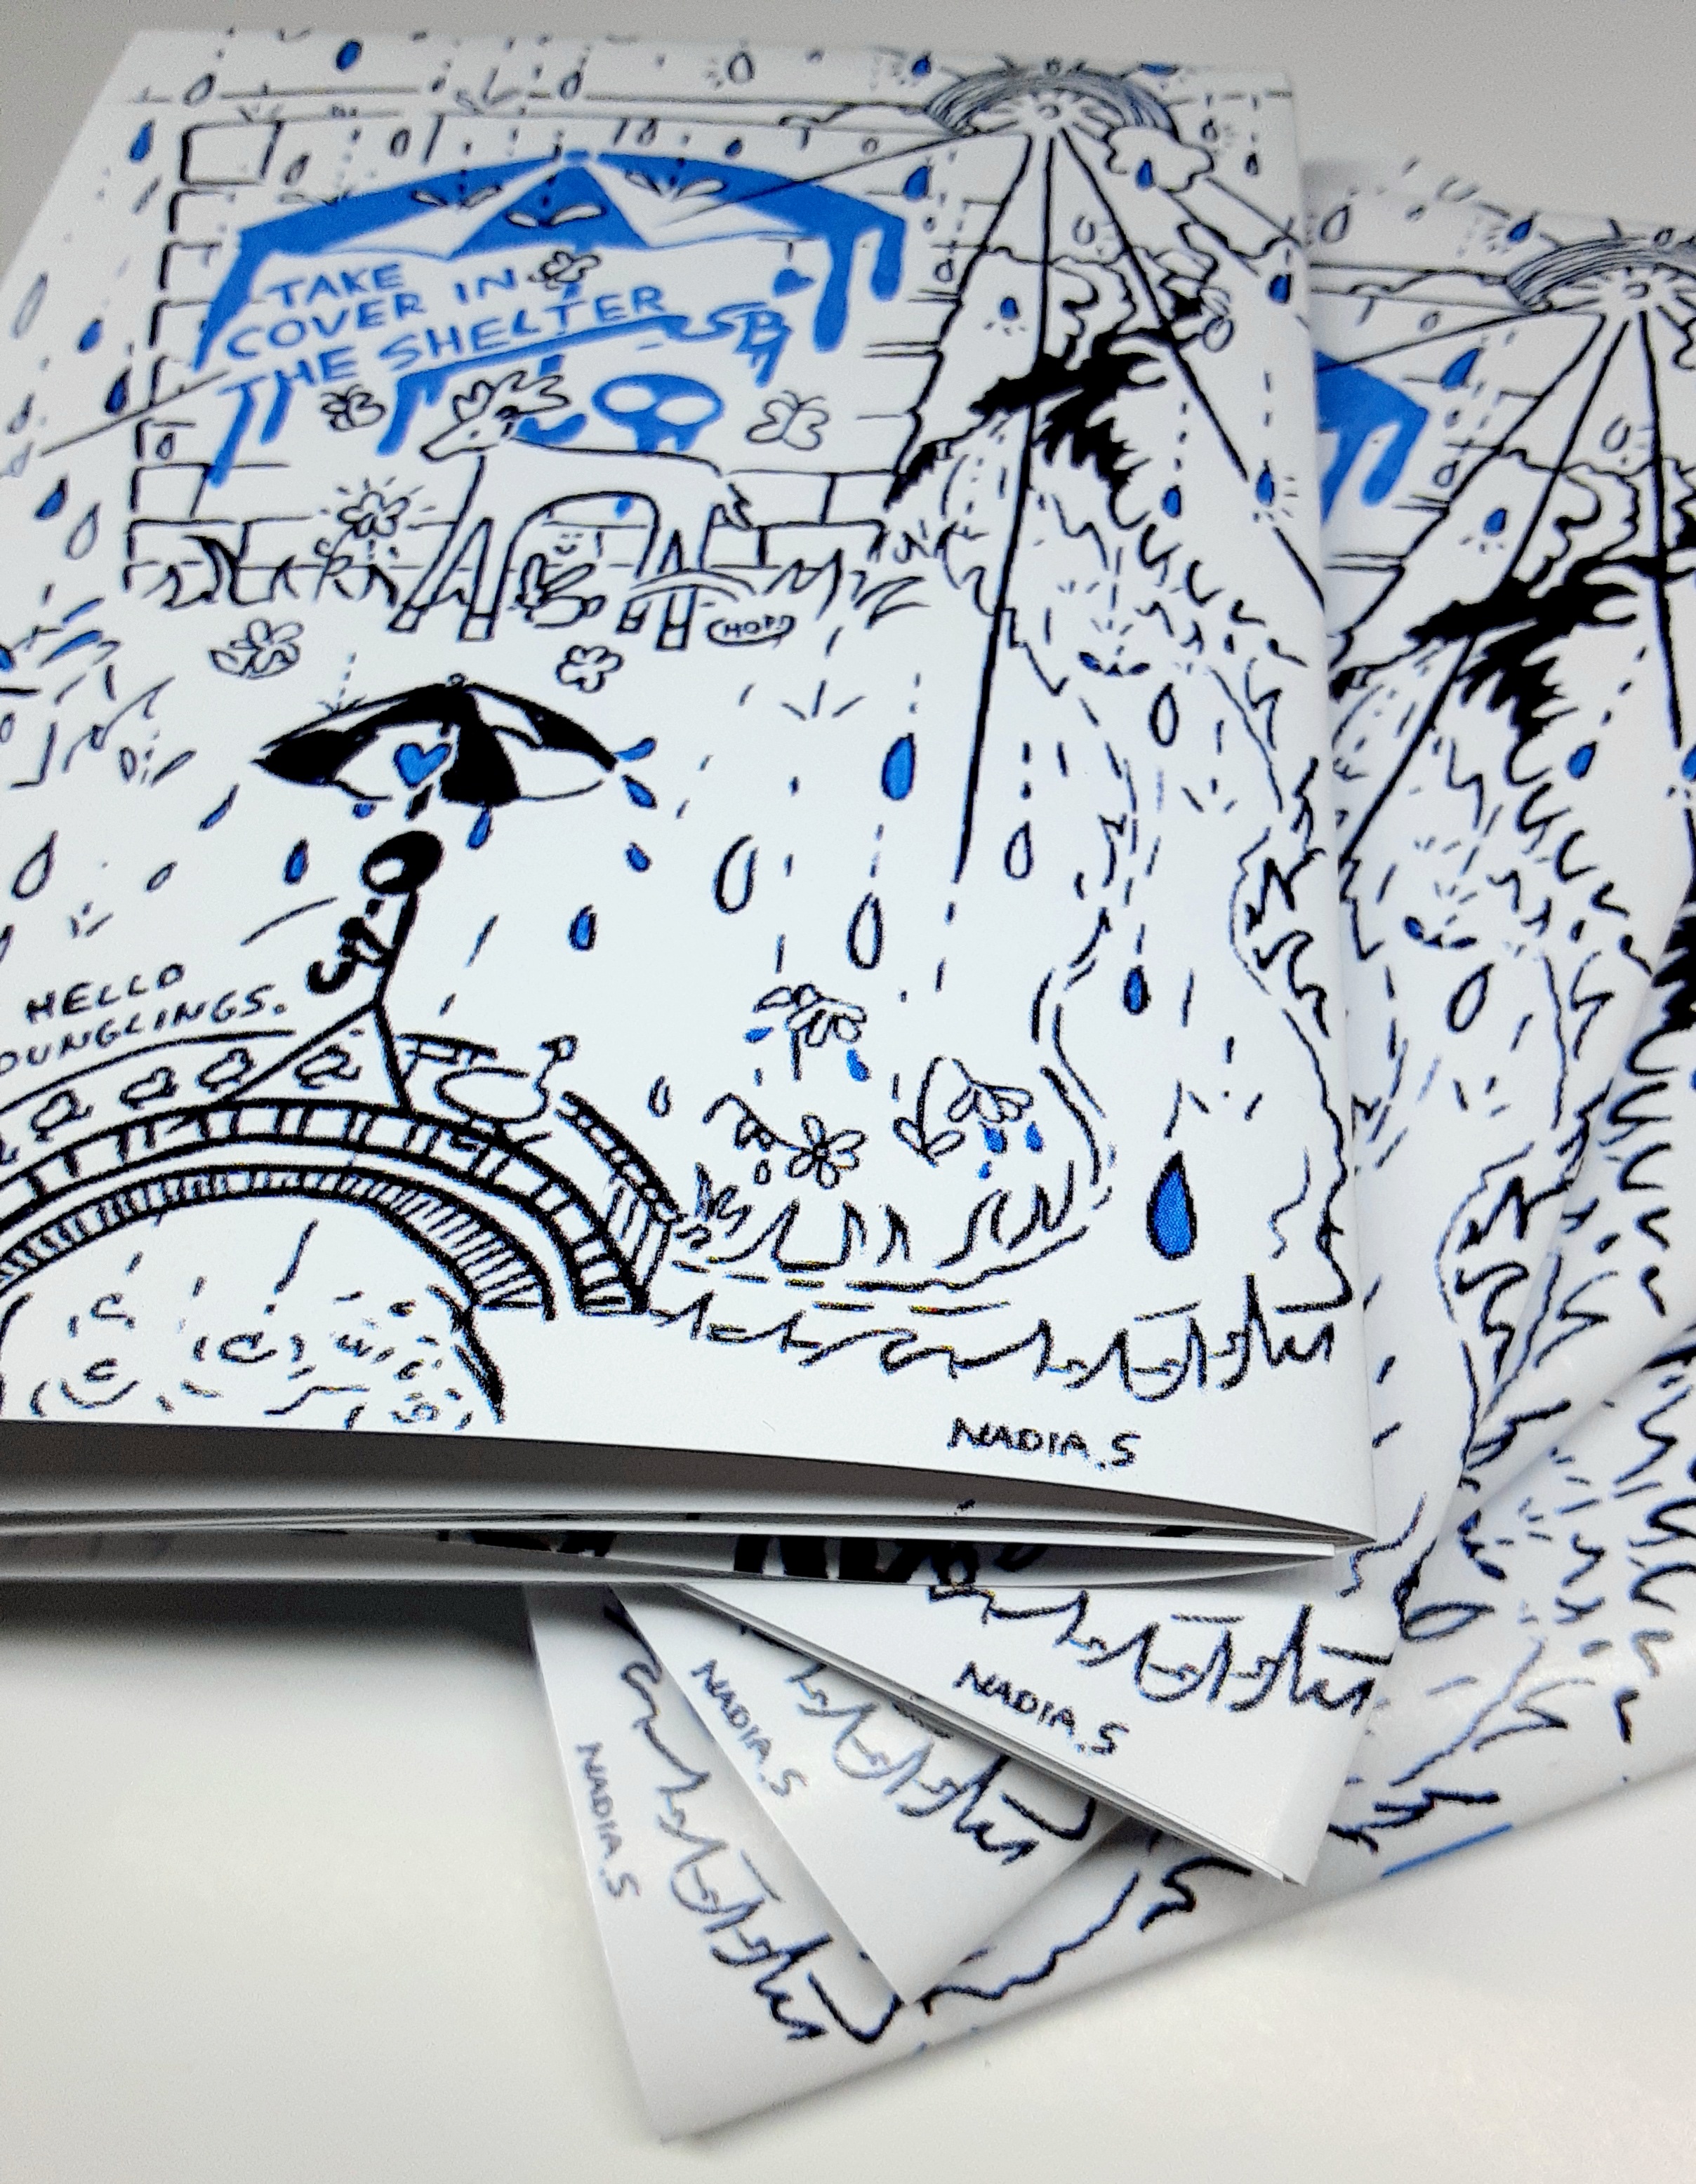 TAKE
COVER IN
THE SHELTER
CHOP
HELLO
OUNGLINGS.
NADIA.S
NADIA.S
NADIA.S
NADIA.S